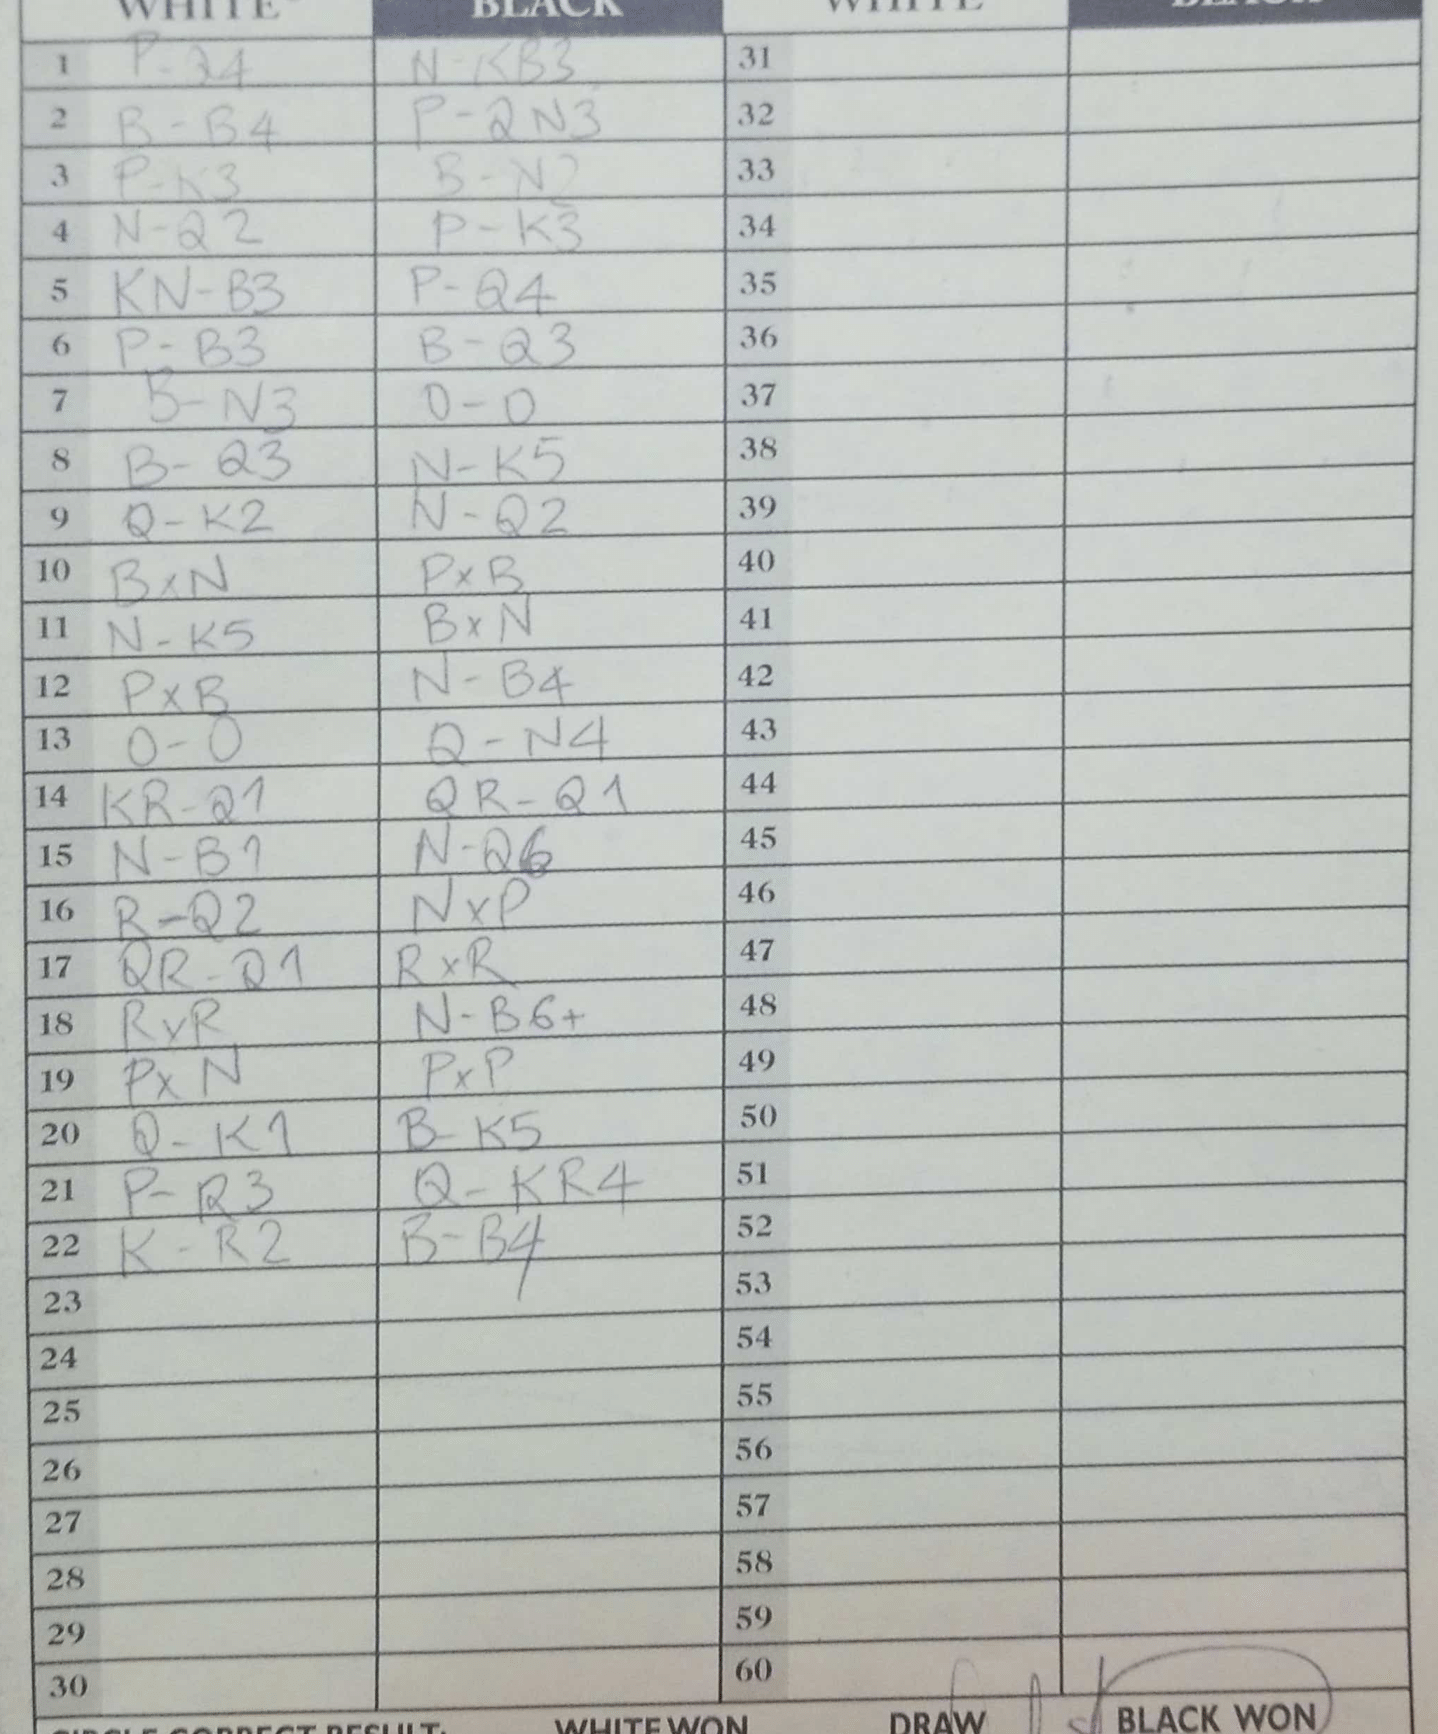 WHITE BLACK WHITE BLACK
1 P-Q4 N-KB3 31
2 B-B4 P-QN3 32
3 P-K3 B-N2 33
4 N-Q2 P-K3 34
5 KN-B3 P-Q4 35
6 P-B3 B-Q3 36
7 B-N3 0-0 37
8 B-Q3 N-K5 38
9 Q-K2 N-Q2 39
10 BxN PxB 40
11 N-K5 BxN 41
12 PxB N-B4 42
13 0-0 Q-N4 43
14 KR-Q1 QR-Q1 44
15 N-B1 N-Q6 45
16 R-Q2 NxP 46
17 QR-Q1 RxR 47
18 RxR N-B6+ 48
19 PxN PxP 49
20 Q-K1 B-K5 50
21 P-R3 Q-KR4 51
22 K-R2 B-B4 52
23 53
24 54
25 55
26 56
27 57
28 58
29 59
30 60
CIRCLE CORRECT RESULT: WHITE WON DRAW BLACK WON